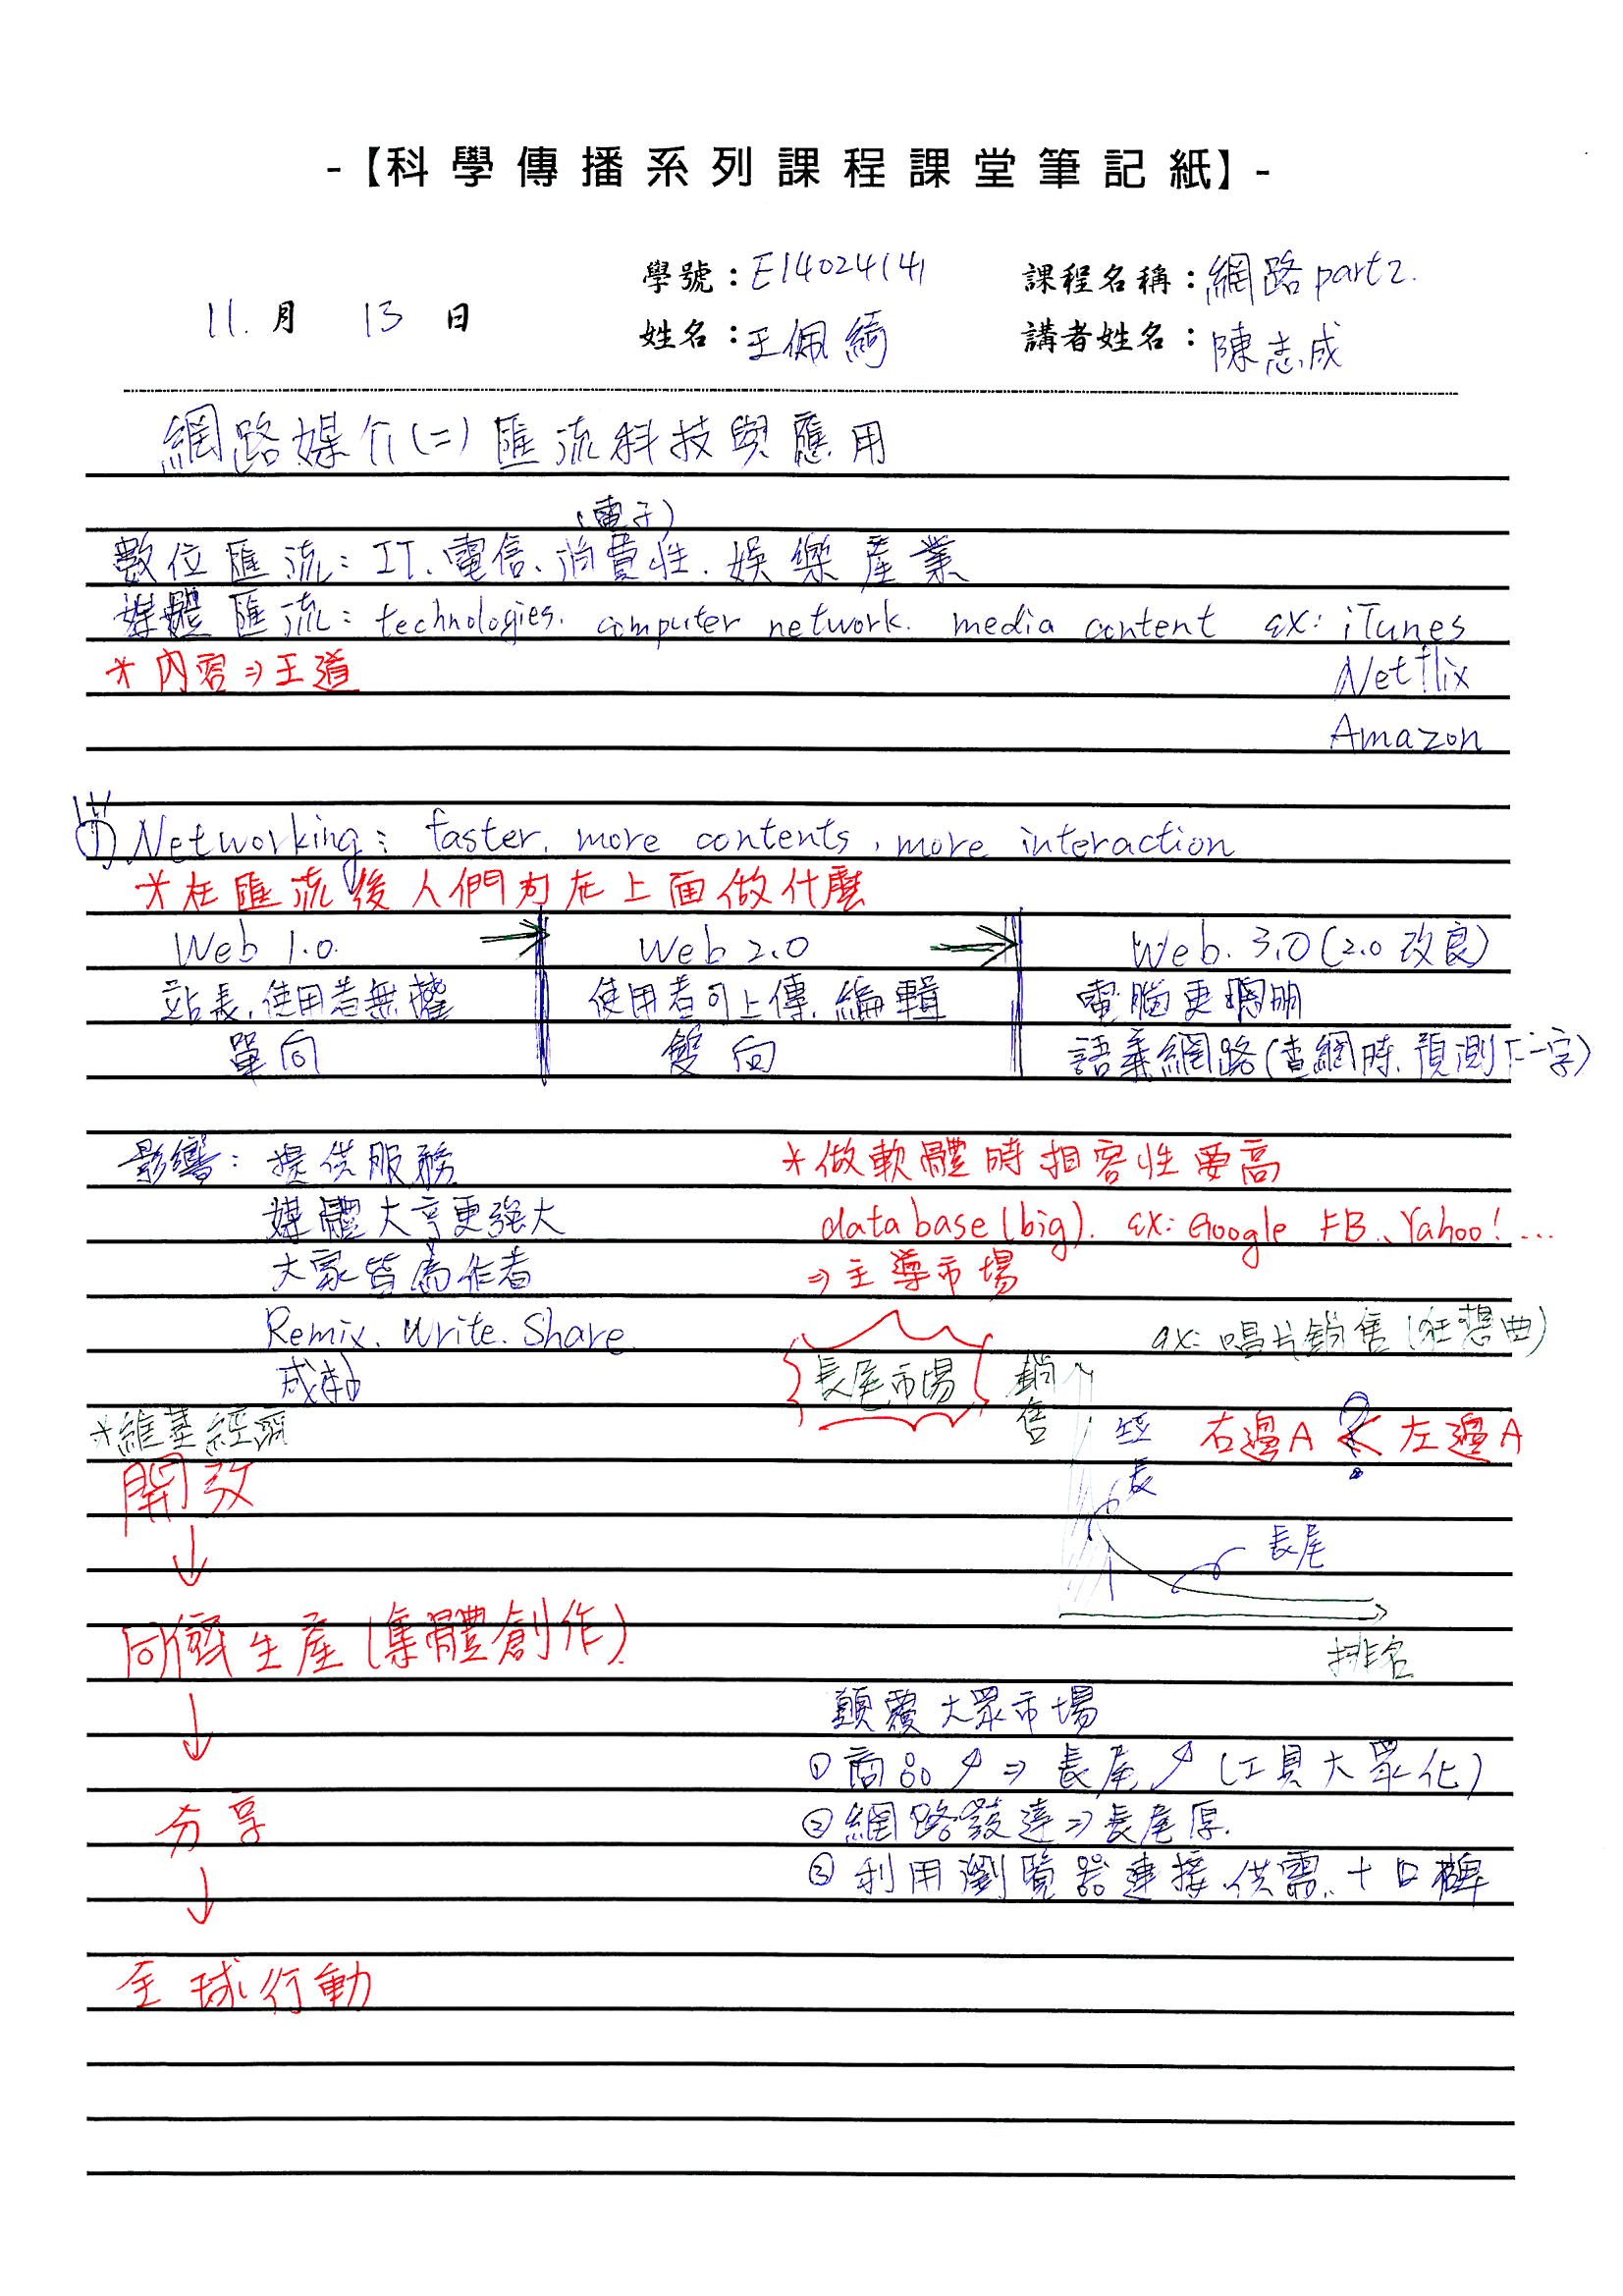 -【科學傳播系列課程課堂筆記紙】-
學號：E14024141 課程名稱：網路part2.
11.月 13 日
姓名：王佩綺 講者姓名：陳志成
網路媒介(二)匯流科技與應用
(電子)
數位匯流：IT、電信、消費性、娛樂產業
媒體匯流：technologies. computer network. media content ex: iTunes
*內容⇒王道 Netflix
Amazon
① Networking: faster, more contents, more interaction
*在匯流後人們在上面做什麼
Web 1.0. → Web 2.0 → Web. 3.0 (2.0 改良)
站長, 使用者無權 使用者可上傳, 編輯 電腦更聰明
單向 雙向 語義網路(查網時, 預測下一字)
影響：提供服務 *做軟體時相容性要高
媒體大亨更強大 database(big). ex: Google FB、Yahoo!...
大家皆為作者 ⇒主導市場
Remix. Write. Share ex: 唱片銷售(狂想曲)
長尾市場 銷售
*維基經濟 短 右邊A < 左邊A
?
開放 長
↓ 長尾
同儕生產(集體創作)
排名
↓ 顛覆大眾市場
①商品↗⇒長尾↗(工具大眾化)
分享 ②網路發達⇒長尾厚.
↓ ③利用瀏覽器連接供需.+口碑
全球行動